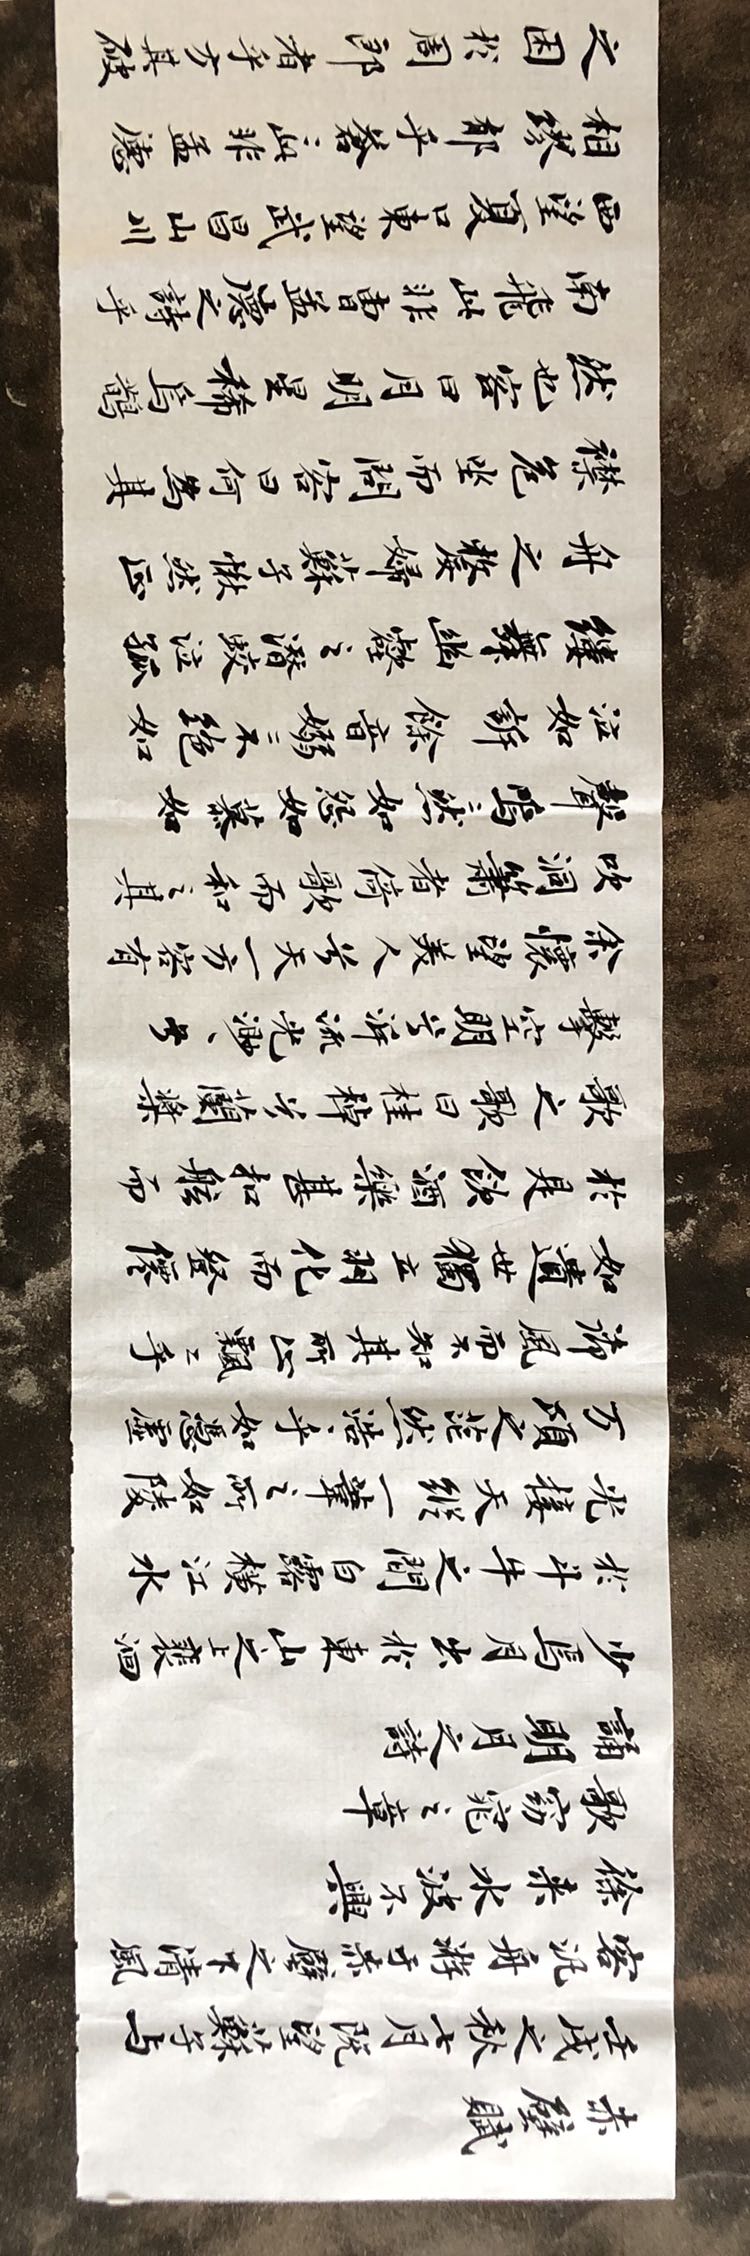 赤壁賦
壬戌之秋七月既望蘇子与
客汎舟游于赤壁之下清風
徐来水波不興
歌窈窕之章
誦明月之詩
少焉月出於東山之上裴洄
於斗牛之間白露橫江水
光接天縱一葦之所如陵
万頃之茫然浩乎如馮虛
御風而不知其所止飄〻乎
如遺世獨立羽化而登僊
於是飲酒樂甚扣舷而
歌之歌曰桂棹兮蘭槳
擊空明兮泝流光渺〻兮
余懷望美人兮天一方客有
吹洞簫者倚歌而和之其
聲嗚〻然如怨如慕如
泣如訴餘音嫋〻不絕如
縷舞幽壑之潛蛟泣孤
舟之嫠婦蘇子愀然正
襟危坐而問客曰何為其
然也客曰月明星稀烏鵲
南飛此非曹孟德之詩乎
西望夏口東望武昌山川
相繆郁乎蒼此非孟德
之困於周郎者乎方其破